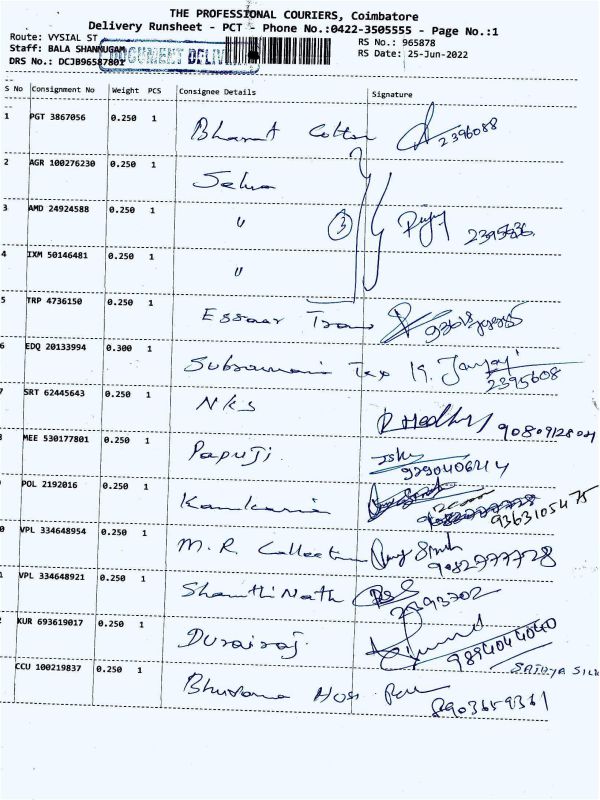 THE PROFESSIONAL COURIERS, Coimbatore
Delivery Runsheet - PCT - Phone No.:0422-3505555 - Page No.:1
Route: VYSIAL ST RS No.: 965878
Staff: BALA SHANMUGAM DOCUMENT RS Date: 25-Jun-2022
DRS No.: DCJB96587801
S No Consignment No Weight PCS Consignee Details Signature
1 PGT 3867056 0.250 1 Bharat Cotton 2396088
2 AGR 100276230 0.250 1 Selva
3 AMD 24924588 0.250 1 " 3
4 IXM 50146481 0.250 1 "
5 TRP 4736150 0.250 1 Essaar Trans
6 EDQ 20133994 0.300 1 Subramani Tex 2395608
7 SRT 62445643 0.250 1 NKS
8 MEE 530177801 0.250 1 Papuji. 9290406414
POL 2192016 0.250 1 Kankaria 9363105475
0 VPL 334648954 0.250 1 M.R. Collection 9082777728
1 VPL 334648921 0.250 1 Shanthi Nath
2 KUR 693619017 0.250 1 Durairaj. 9894044040
CCU 100219837 0.250 1 Bhuvana Hos 8903659361
SATHYA SILK